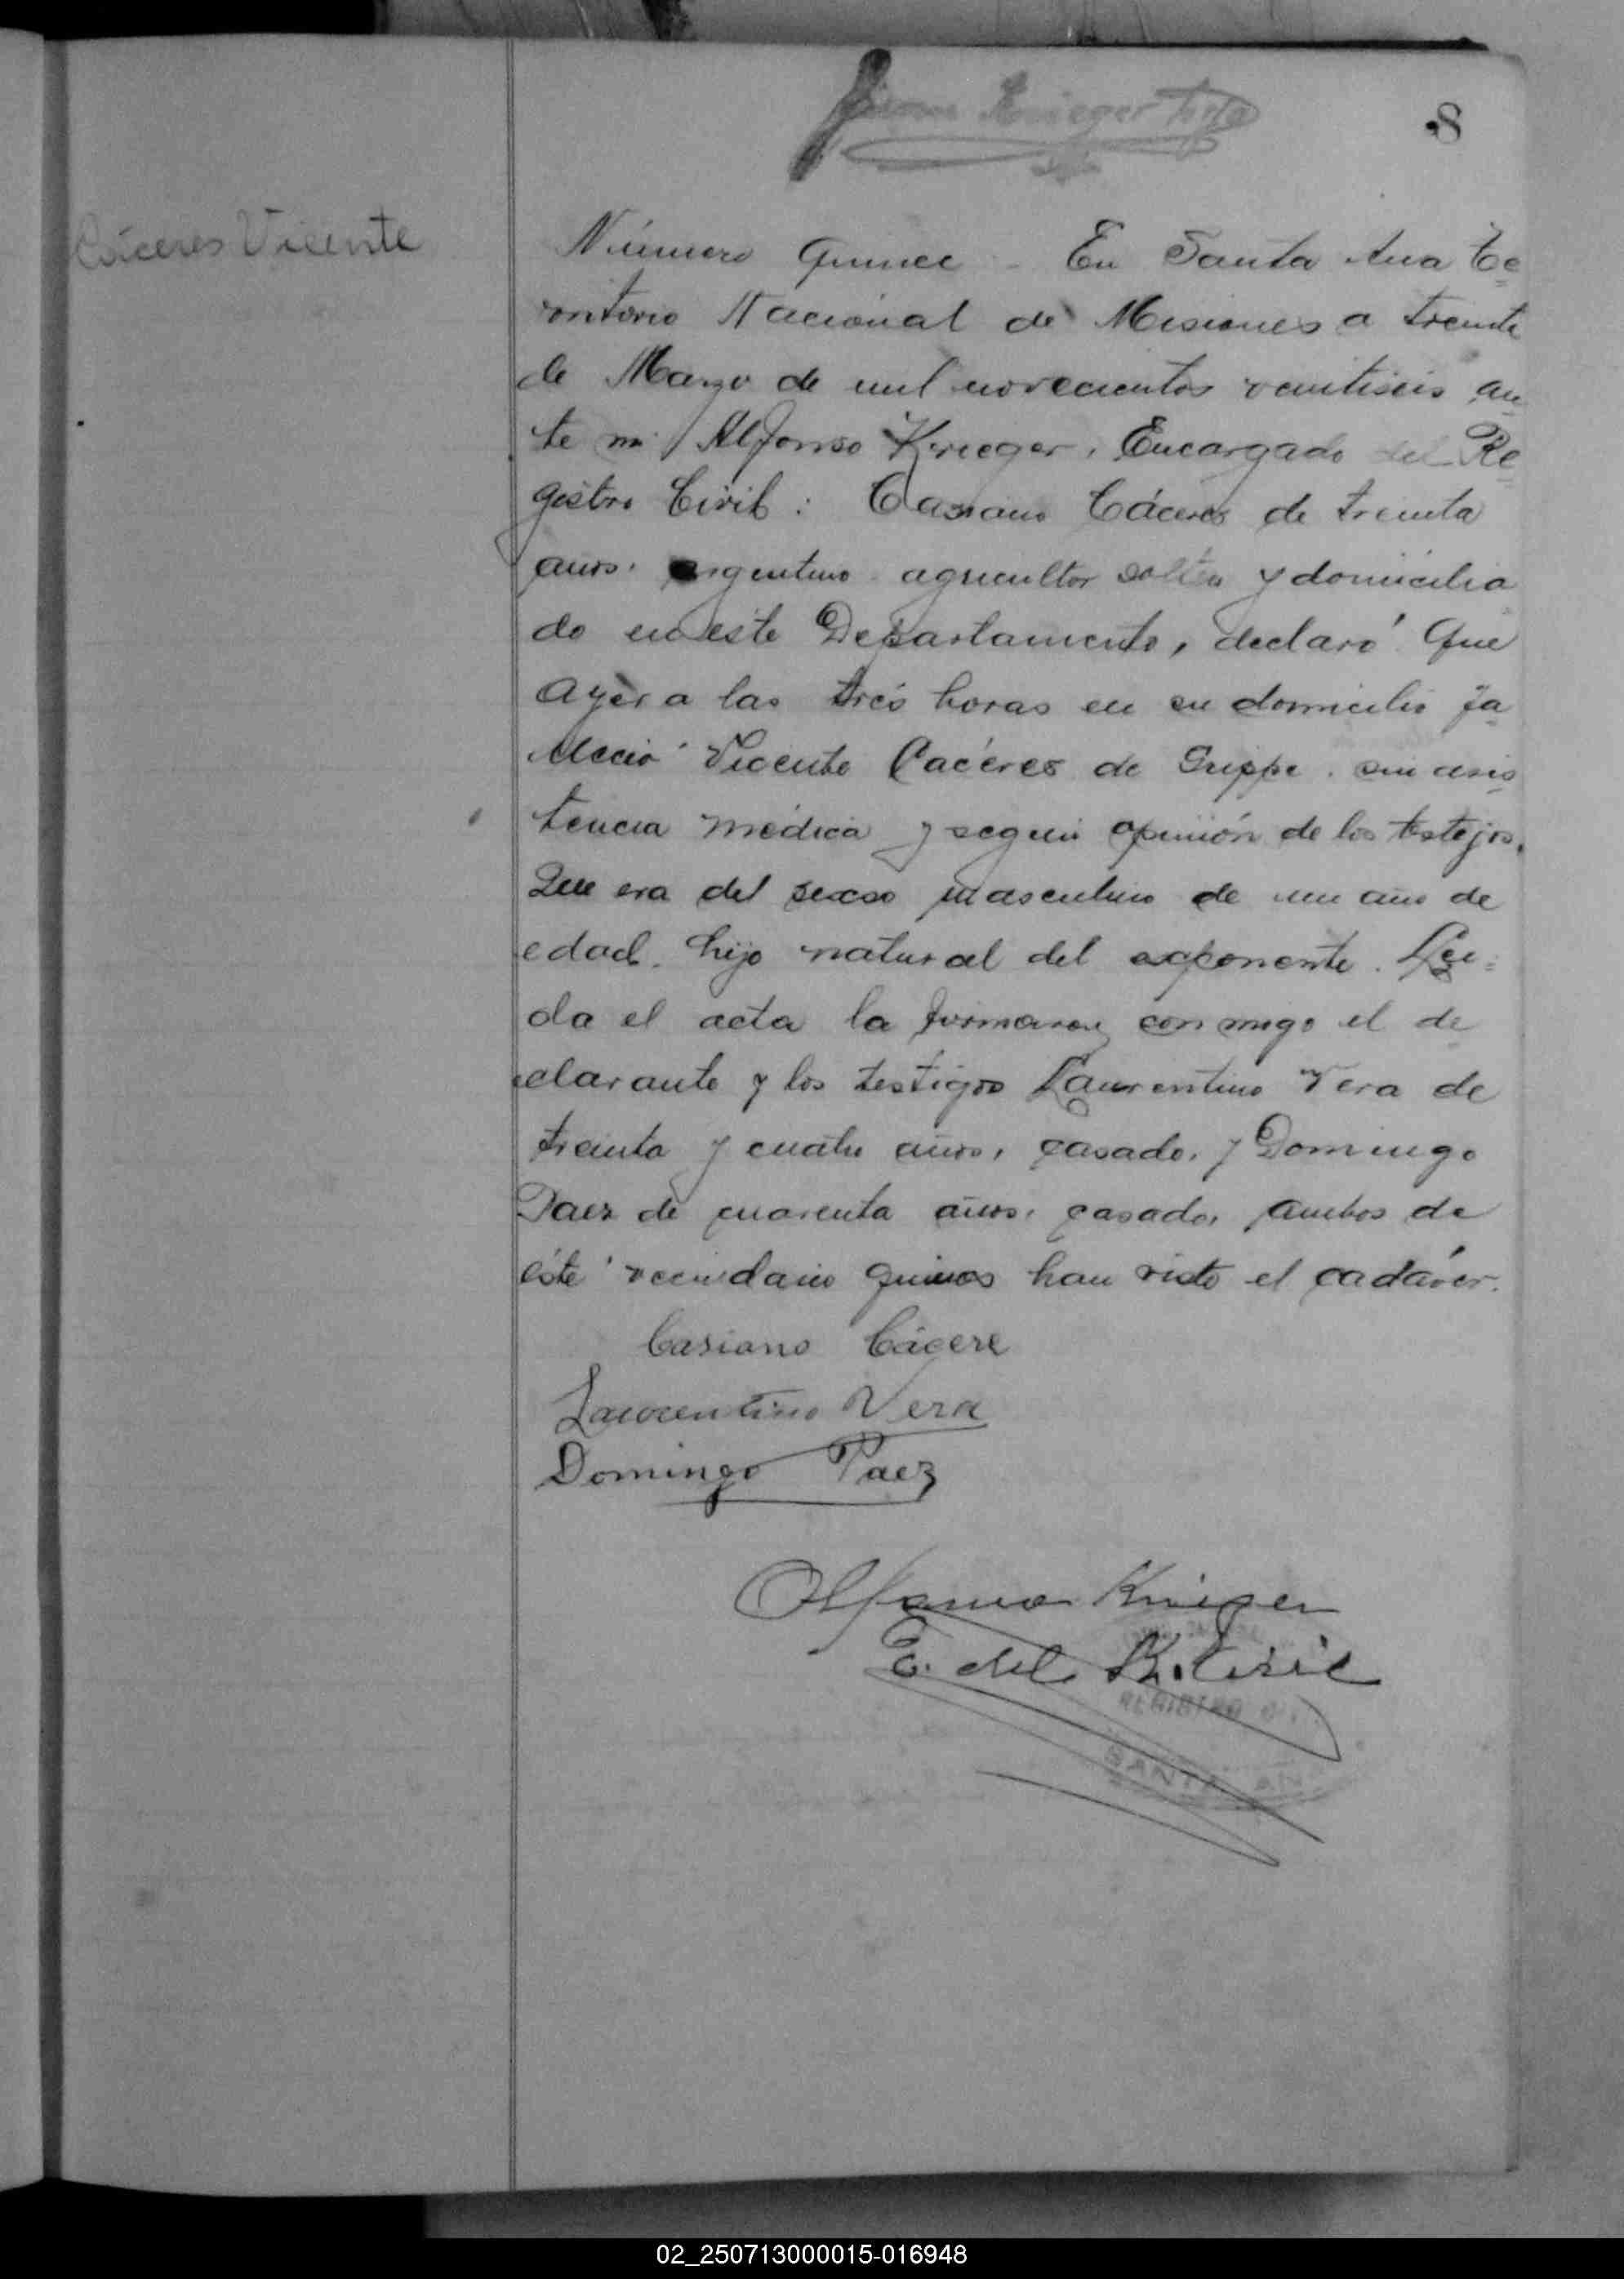 8
Cáceres Vicente
Número quince - En Santa Ana Te
rritorio Nacional de Misiones a treinta
de Marzo de mil novecientos veintiseis an
te mi Alfonso Krieger, Encargado del Re
gistro Civil: Casiano Cáceres de treinta
años, argentino agricultor soltero y domicilia
do en este Departamento, declaró: Que
ayer a las tres horas en su domicilio fa
lleció Vicente Cacéres de Grippe, sin asis
tencia médica y según opinión de los testijos.
Que era del sexso masculino de un año de
edad. hijo natural del exponente. Lei=
da el acta la firmaron conmigo el de
clarante y los testigos Laurentino Vera de
treinta y cuatro años, casado, y Domingo
Paez de cuarenta años, casado, ambos de
éste vecindario quienes han visto el cadáver.
Casiano Cácere
Laurentino Vera
Domingo Paez
Alfonso Krieger
E. del R. Civil
REGISTRO
SANTA ANA
02_250713000015-016948